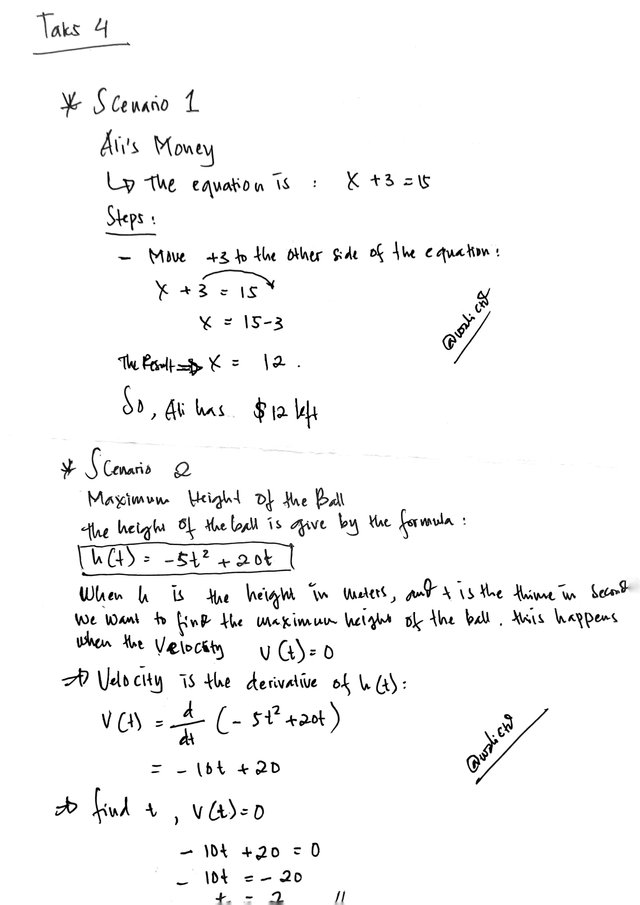 Taks 4
* Scenario 1
Ali's Money
↳ The equation is : x + 3 = 15
Steps :
- Move +3 to the other side of the equation :
x + 3 = 15
x = 15-3
The Result ⇒ x = 12.
So, Ali has $12 left
@walictd
* Scenario 2
Maximum Height of the Ball
the height of the ball is give by the formula :
h(t) = -5t² + 20t
When h is the height in meters, and t is the thime in second
We want to find the maximum height of the ball. this happens
when the Velocity V(t)=0
⇒ Velocity is the derivative of h(t):
V(t) = d/dt (-5t²+20t)
= -10t + 20
@walictd
⇒ find t, V(t)=0
-10t +20 = 0
-10t = -20
t = 2 //